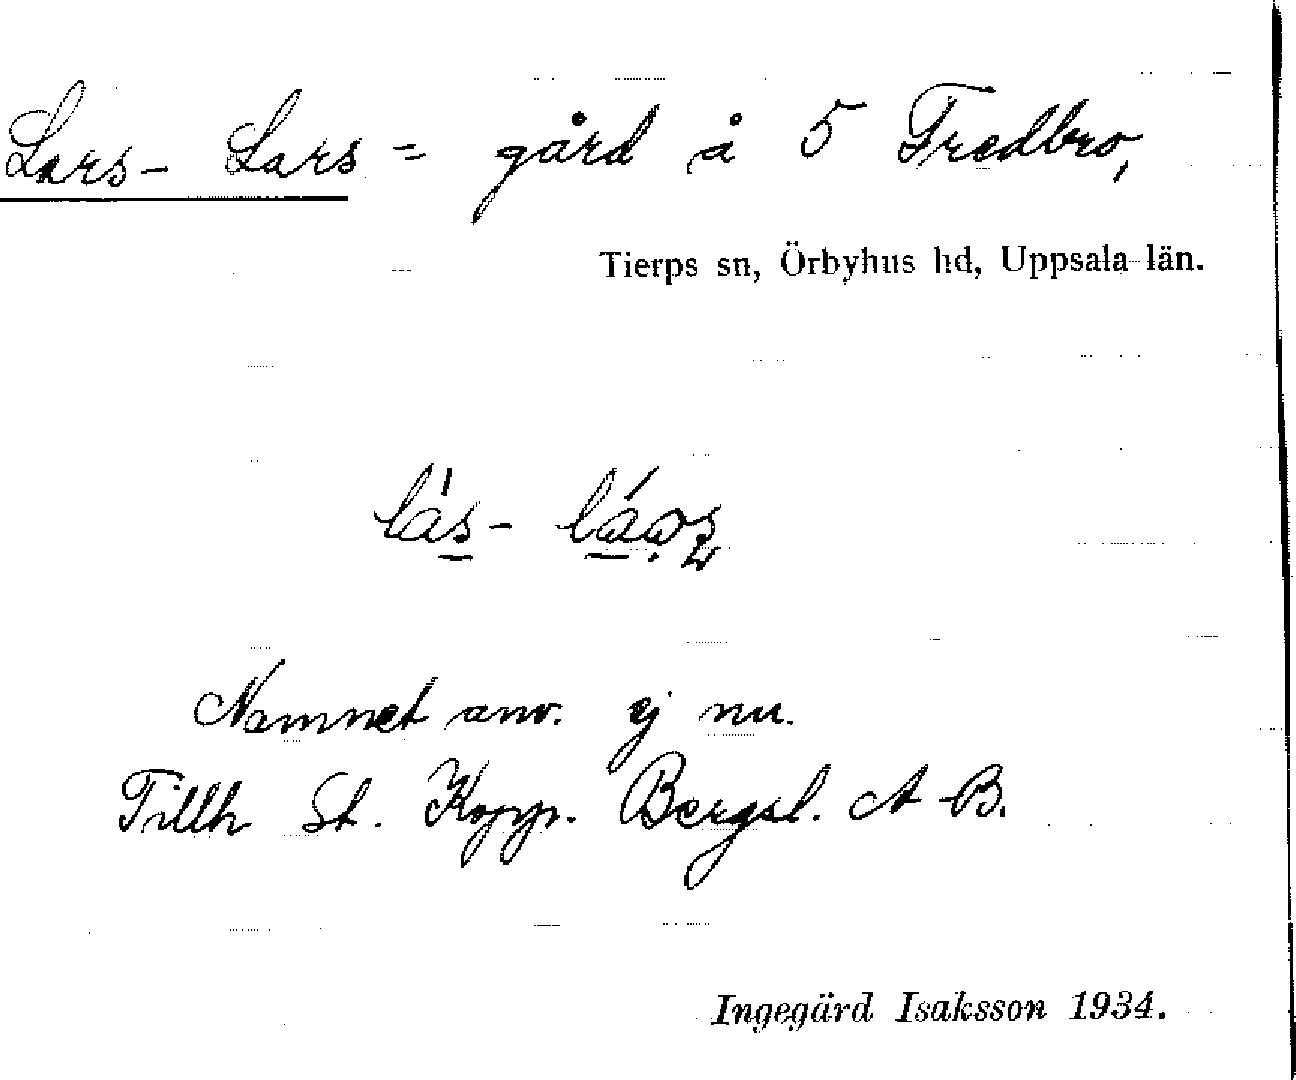 Lars- Lars = gård å 5 Fredbro,
Tierps sn, Örbyhus hd, Uppsala län.
lás-
Namnet anv. ej nu.
Tillh St. Kopp. Bergsl. A-B.
Ingegärd Isaksson 1934.